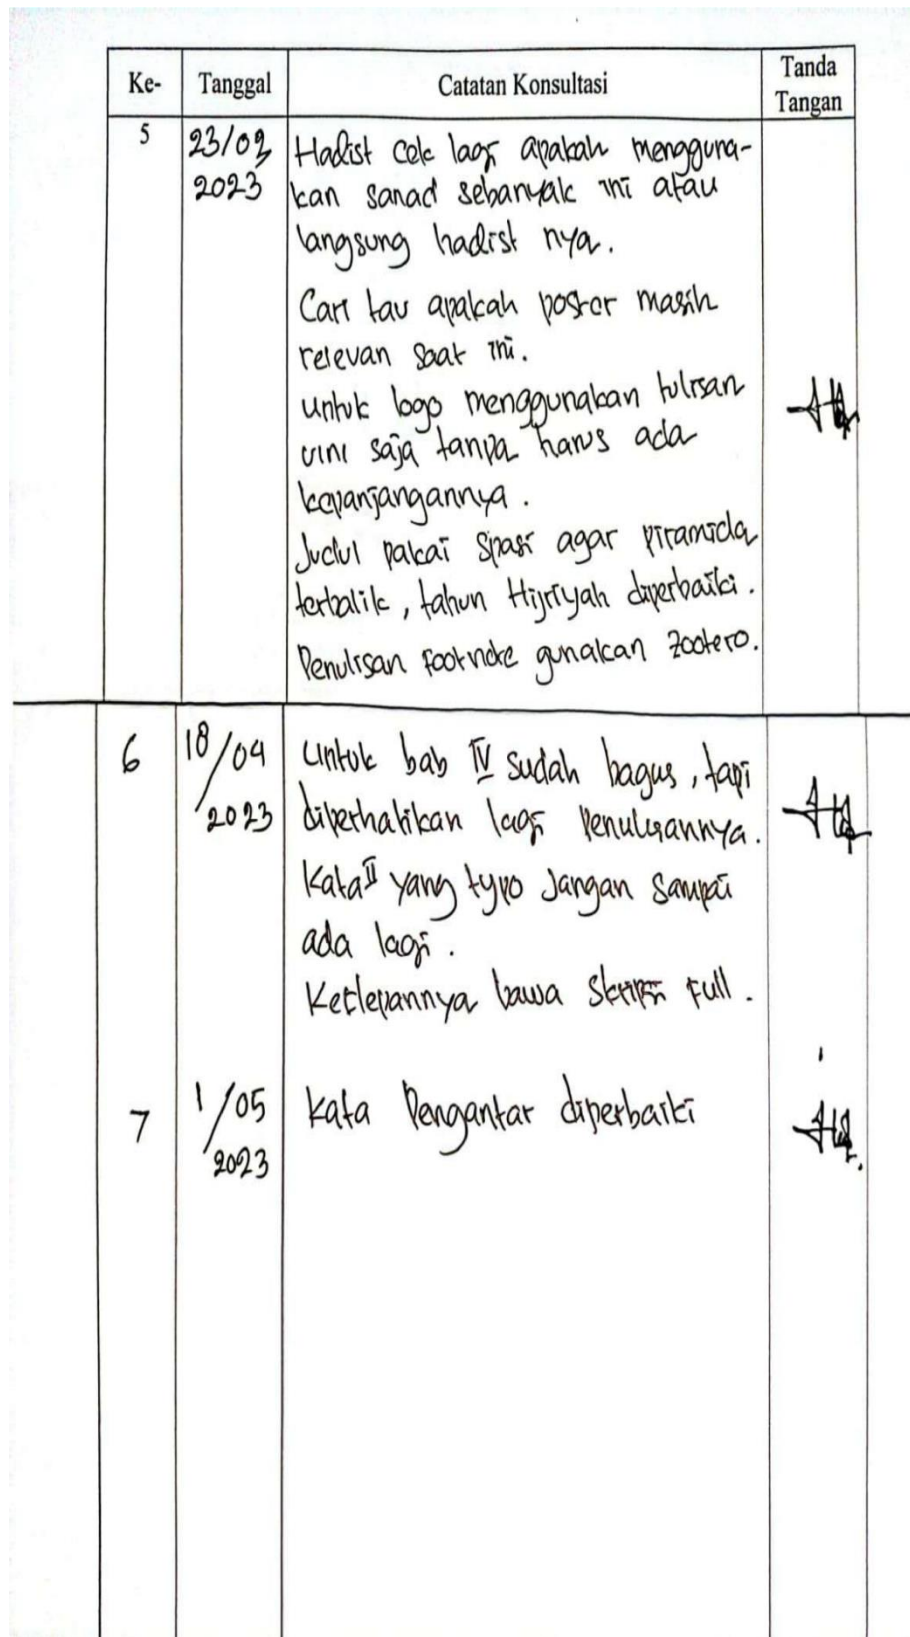 Ke- Tanggal Catatan Konsultasi Tanda
Tangan
5 23/03 Hadist cek lagi apakah mengguna-
2023 kan sanad sebanyak ini atau
langsung hadist nya.
Cari tau apakah poster masih
relevan saat ini.
untuk logo menggunakan tulisan
saja tanpa harus ada
kepanjangannya.
Judul pakai spasi agar piramida
terbalik, tahun Hijriyah diperbaiki.
Penulisan footnote gunakan zootero.
6 18/04 Untuk bab IV sudah bagus, tapi
2023 diperhatikan lagi penulisannya.
Kata II yang typo jangan sampai
ada lagi.
Kedepannya bawa skripsi full.
7 1/05 Kata Pengantar diperbaiki
2023